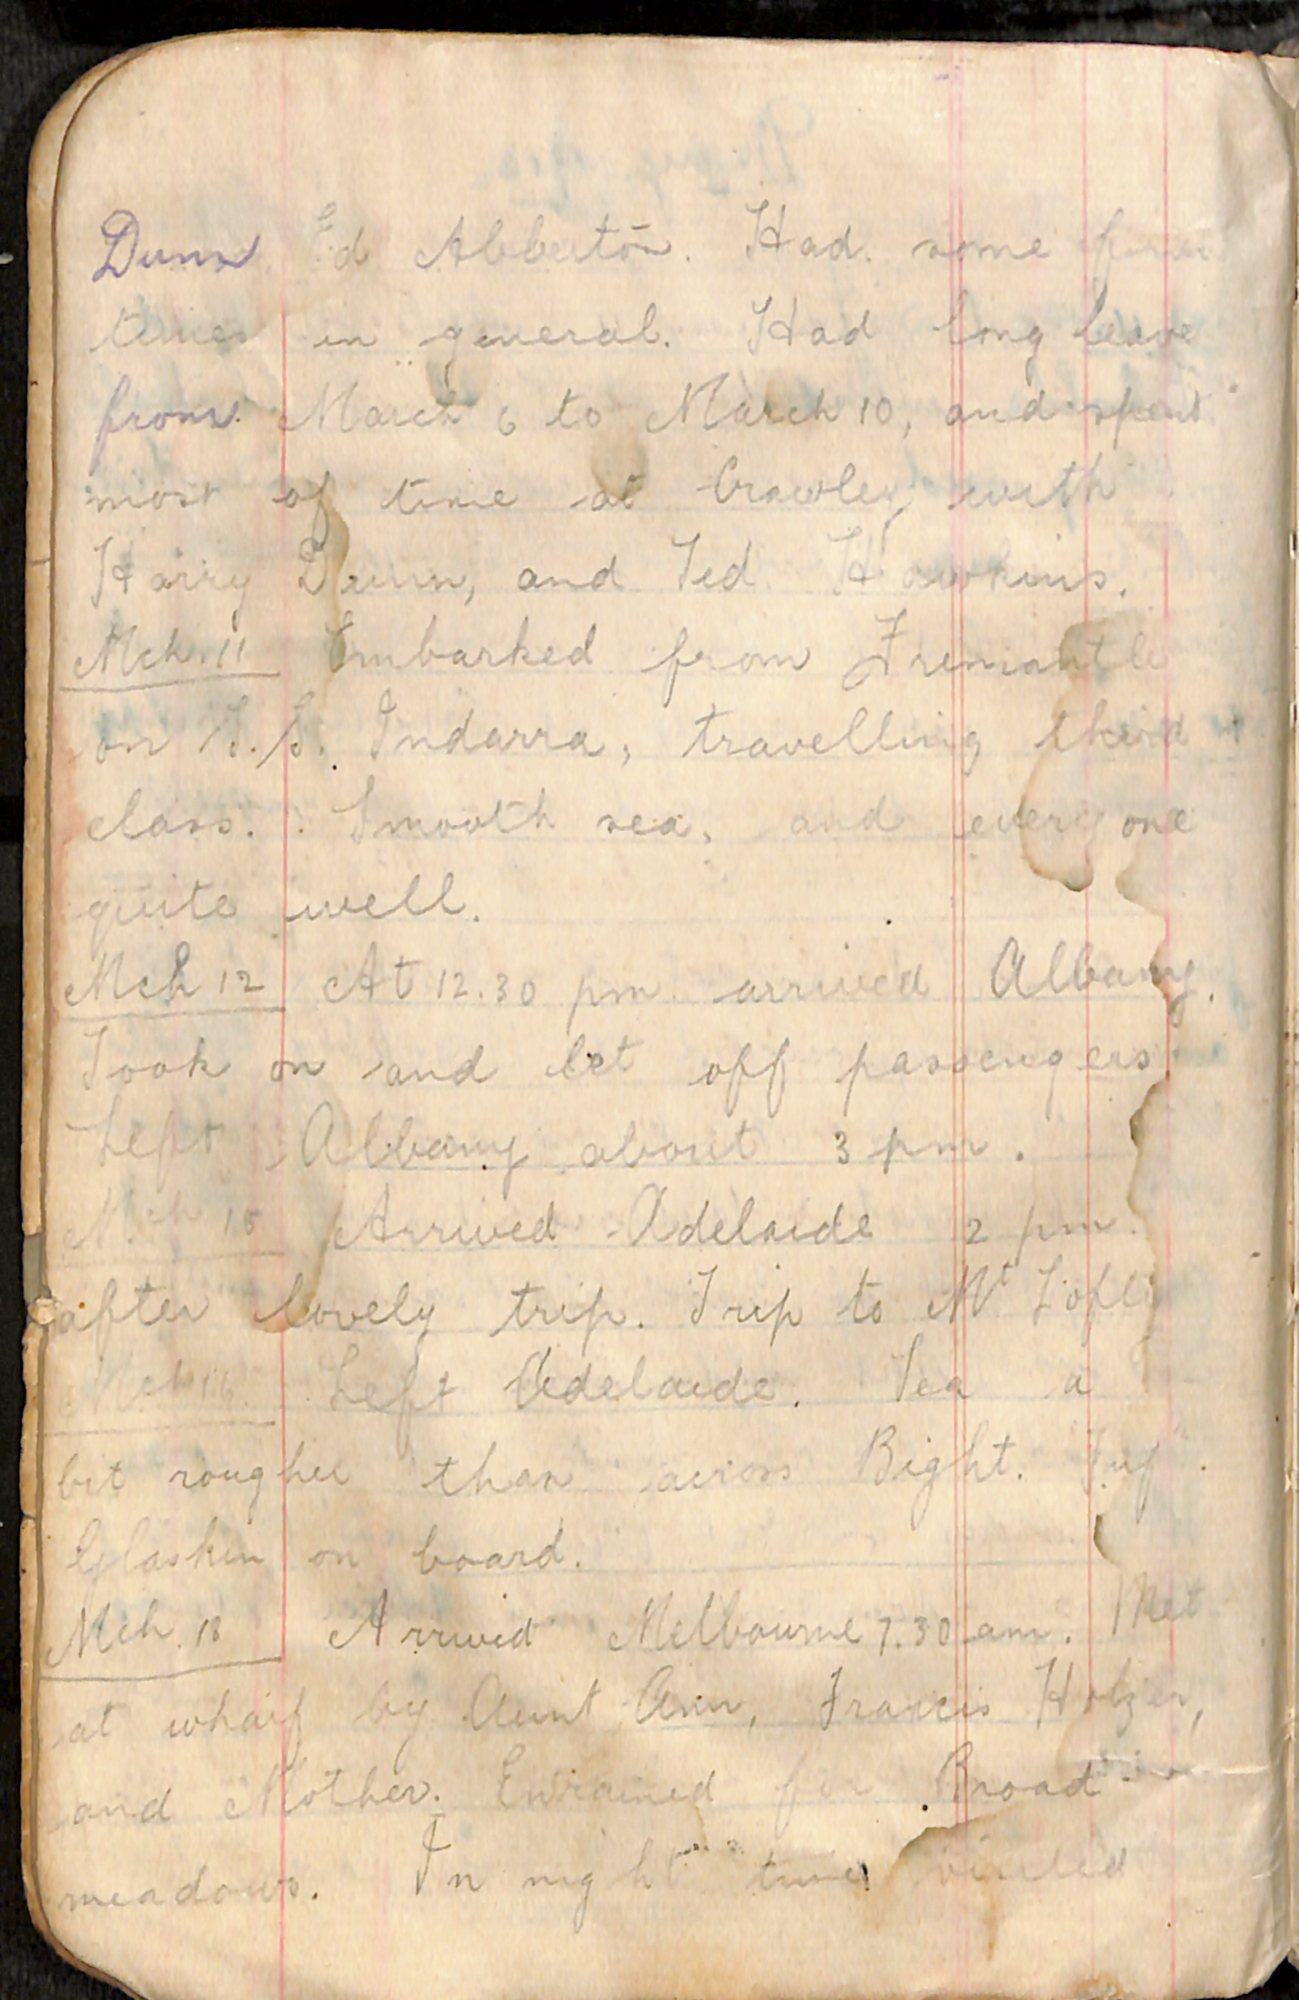 Dunn Ed Abberton. Had some fine
times in general. Had long leave
from March 6 to March 10, and spent
most of time at Crawley with
Harry Dunn, and Ted Hawkins.
Mch 11 Embarked from Fremantle
on S.S. Indarra, travelling third
class. Smooth sea, and everyone
quite well.
Mch 12 At 12.30 pm arrived Albany.
Took on and let off passengers
Left Albany about 3 pm.
Mch 15 Arrived Adelaide 2 pm.
after lovely trip. Trip to Mt Lofty
Mch 16 Left Adelaide. Sea a
bit rougher than across Bight.
Glaskin on board.
Mch 18 Arrived Melbourne 7.30 am. Met
at wharf by Aunt Ann, Francis Holzer,
and Mother. Entrained for Broad
meadows. In night time visited